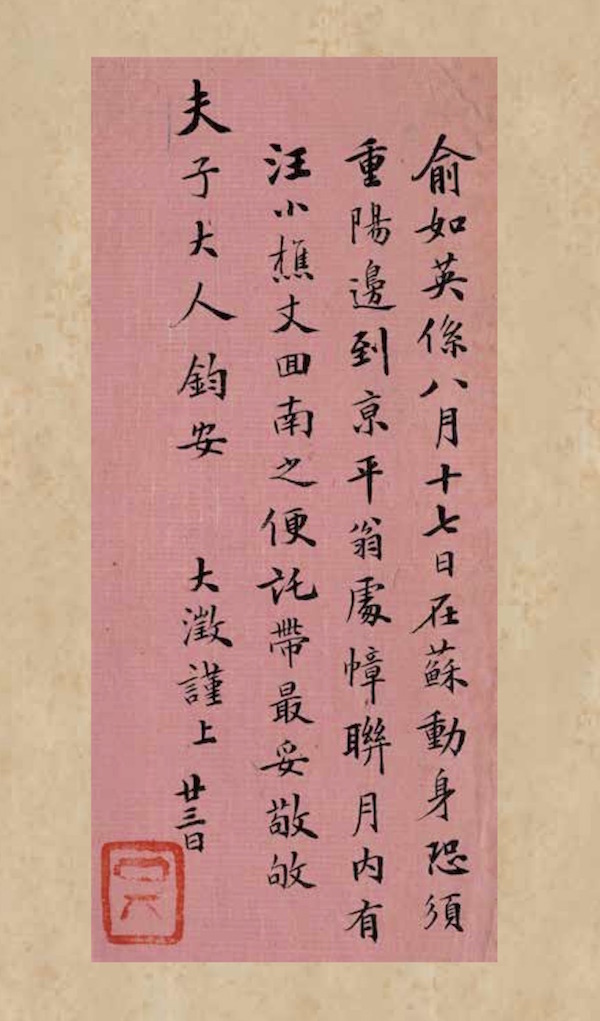 俞如英係八月十七日在蘇動身恐須
重陽邊到亰平翁處幛聯月内有
汪小樵丈囬南之便託帶最妥敬敂
夫子大人鈞安 大澂謹上 廿三日